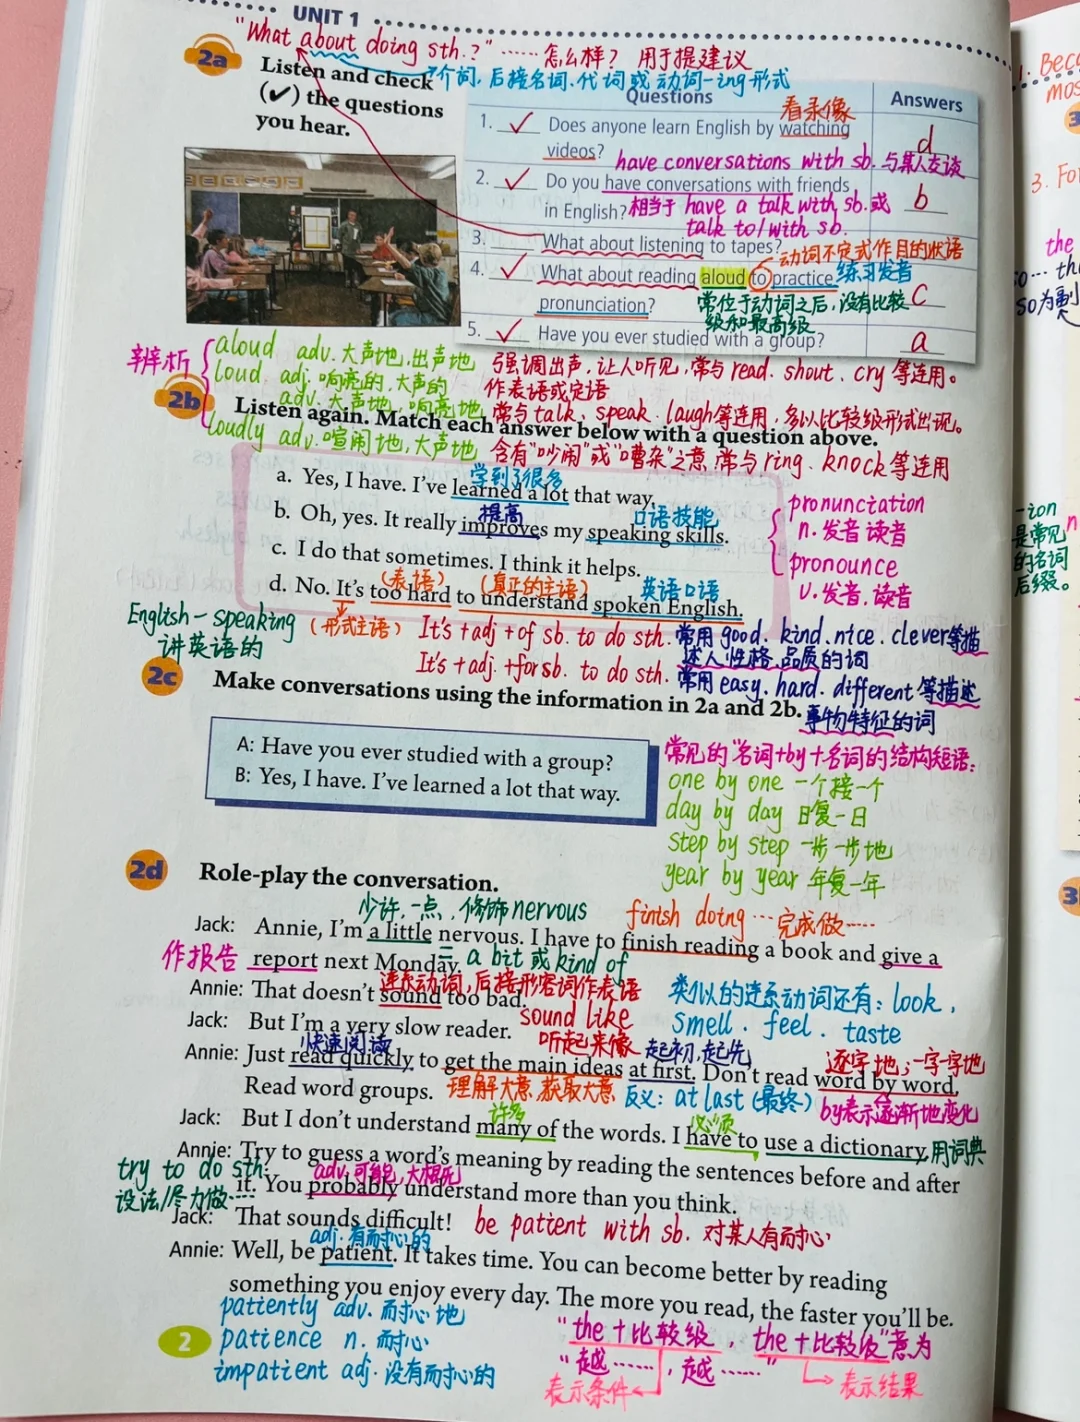 UNIT 1
"What about doing sth.?" ……怎么样? 用于提建议
2a Listen and check
介词,后接名词、代词或动词-ing形式
(✓) the questions
you hear.
Questions
Answers
看录像
1. ✓ Does anyone learn English by watching
videos?
d
have conversations with sb. 与某人交谈
2. ✓ Do you have conversations with friends
in English?
b
相当于 have a talk with sb. 或
talk to/with sb.
3. What about listening to tapes?
动词不定式作目的状语
4. ✓ What about reading aloud to practice
练习发音
pronunciation?
c
常位于动词之后,没有比较
级和最高级
5. ✓ Have you ever studied with a group?
a
辨析
aloud adv. 大声地,出声地 强调出声,让人听见,常与 read. shout. cry 等连用。
loud adj. 响亮的,大声的 作表语或定语
adv. 大声地,响亮地 常与talk、speak. laugh等连用,多以比较级形式出现。
loudly adv. 喧闹地,大声地 含有"吵闹"或"嘈杂"之意,常与 ring. knock 等连用
2b Listen again. Match each answer below with a question above.
学到了很多
a. Yes, I have. I've learned a lot that way.
提高
口语技能
b. Oh, yes. It really improves my speaking skills.
c. I do that sometimes. I think it helps.
(表语) (真正的主语) 英语口语
d. No. It's too hard to understand spoken English.
pronunciation
n. 发音 读音
pronounce
v. 发音. 读音
English-speaking
讲英语的
(形式主语) It's+adj+of sb. to do sth. 常用 good. kind. nice. clever等描
述人性格.品质的词
It's+adj.+for sb. to do sth. 常用 easy. hard. different 等描述
事物特征的词
2c Make conversations using the information in 2a and 2b.
A: Have you ever studied with a group?
B: Yes, I have. I've learned a lot that way.
常见的"名词+by+名词的结构短语:
one by one 一个接一个
day by day 日复一日
step by step 一步一步地
year by year 年复一年
2d Role-play the conversation.
少许.一点,修饰nervous
finish doing …完成做……
Jack: Annie, I'm a little nervous. I have to finish reading a book and give a
作报告
report next Monday.
= a bit 或 kind of
连系动词,后接形容词作表语
Annie: That doesn't sound too bad.
类似的连系动词还有: look,
smell. feel. taste
Jack: But I'm a very slow reader.
sound like
听起来像
快速阅读
起初,起先
逐字地;一字一字地
Annie: Just read quickly to get the main ideas at first. Don't read word by word.
Read word groups.
理解大意,获取大意
反义: at last (最终)
by表示逐渐地变化
许多
必须
Jack: But I don't understand many of the words. I have to use a dictionary.
用词典
Annie: Try to guess a word's meaning by reading the sentences before and after
try to do sth.
设法/尽力做……
adv. 可能,大概
it. You probably understand more than you think.
Jack: That sounds difficult!
be patient with sb. 对某人有耐心
adj. 有耐心的
Annie: Well, be patient. It takes time. You can become better by reading
something you enjoy every day. The more you read, the faster you'll be.
patiently adv. 耐心地
patience n. 耐心
impatient adj. 没有耐心的
"the +比较级, the +比较级"意为
"越……, 越……"
表示条件
表示结果
2
1. Beca
mos
3. Fo
the
so… th
so为副
-ion
是常见
的名词
后缀。